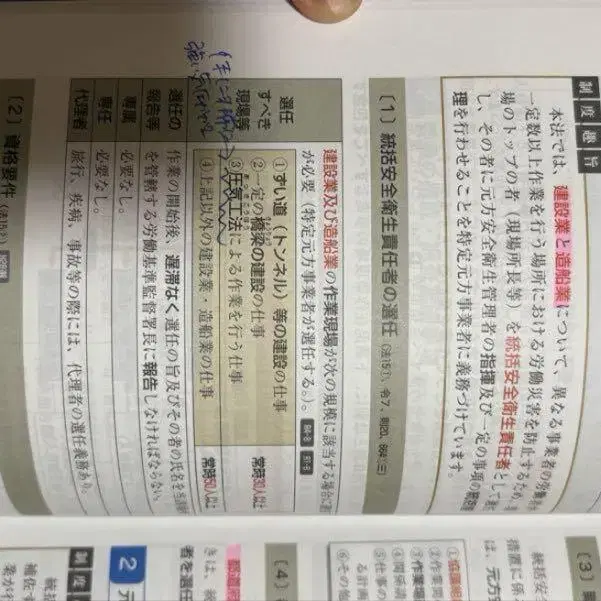 制度趣旨
本法では、建設業と造船業について、異なる事業者の労働者が
一定数以上作業を行う場所における労働災害を防止するため、
場のトップの者（現場所長等）を統括安全衛生責任者として選
し、その者に元方安全衛生管理者の指揮及び一定の事項の統括管
理を行わせることを特定元方事業者に義務づけています。
〔1〕統括安全衛生責任者の選任（法15①、令7、則20、664①三）
建設業及び造船業の作業現場が次の規模に該当する場合に選
が必要（特定元方事業者が選任する。）。
選任すべき現場等
①ずい道（トンネル）等の建設の仕事
②一定の橋梁の建設の仕事
③圧気工法による作業を行う仕事
常時30人以上
④上記以外の建設業・造船業の仕事
常時50人以上
選任の報告等
作業の開始後、遅滞なく選任の旨及びその者の氏名を
を管轄する労働基準監督署長に報告しなければならない。
専属
必要なし。
専任
必要なし。
代理者
旅行、疾病、事故等の際には、代理者の選任義務あり。
〔2〕資格要件（法15②）
〔3〕
統括安
措置に係
は、元方安
①協議組
②作業間
③作業場
④関係請
⑤仕事の
る計画
⑥その他
〔4〕
都道府
きは、統
者を選任
2 元
制度
統括
補佐す
業が